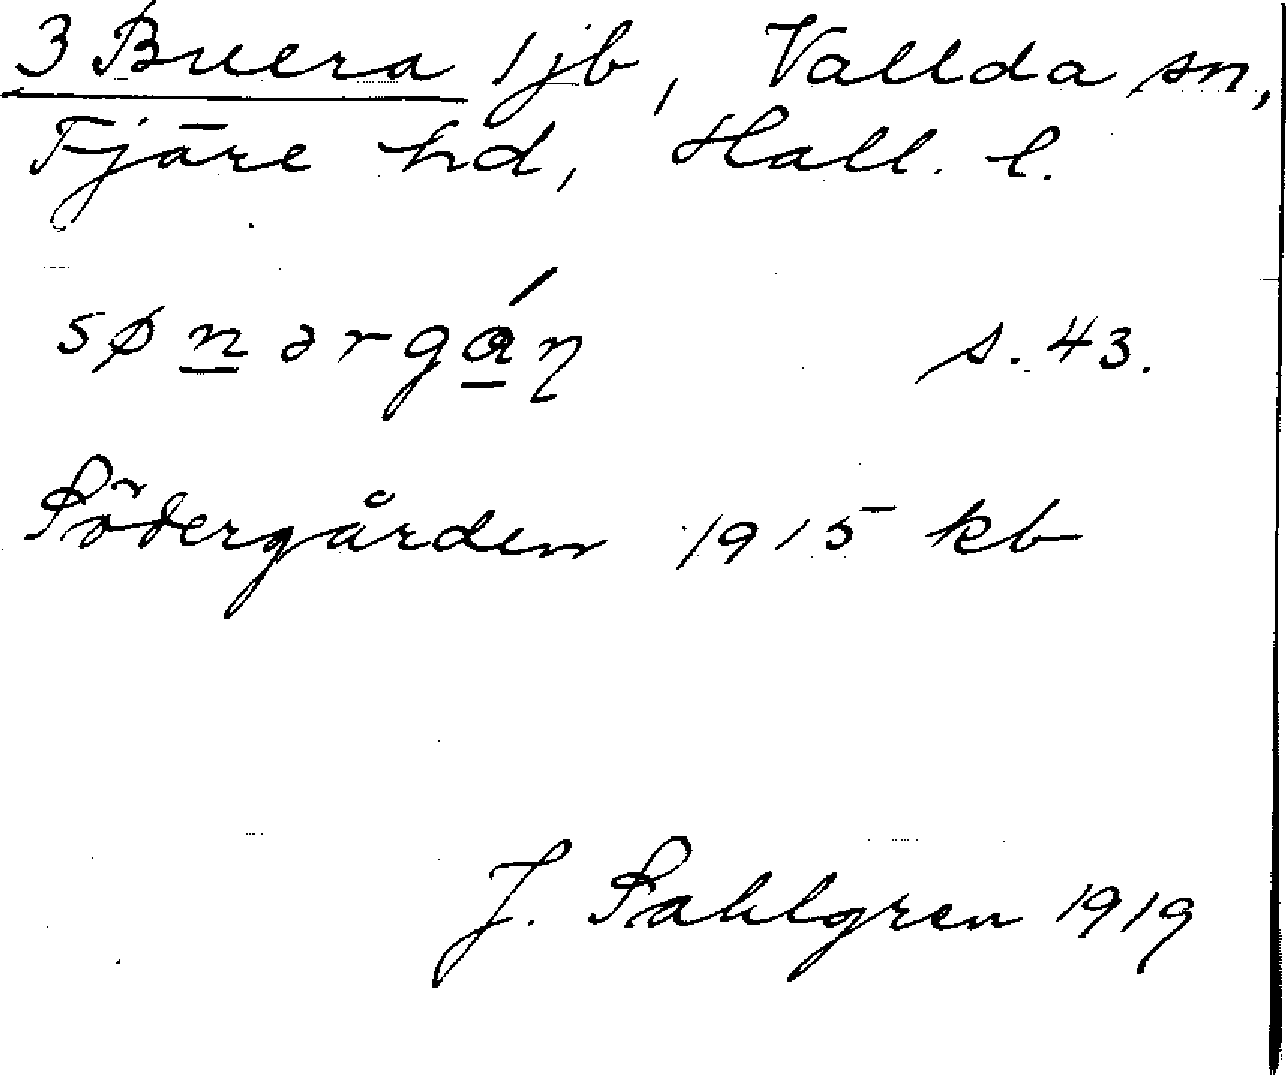 3 Buera 1 jb, Vallda sn,
Fjäre hd, Hall. l.
søn̲ərgá̲ŋ s. 43.
Södergården 1915 kb
J. Sahlgren 1919